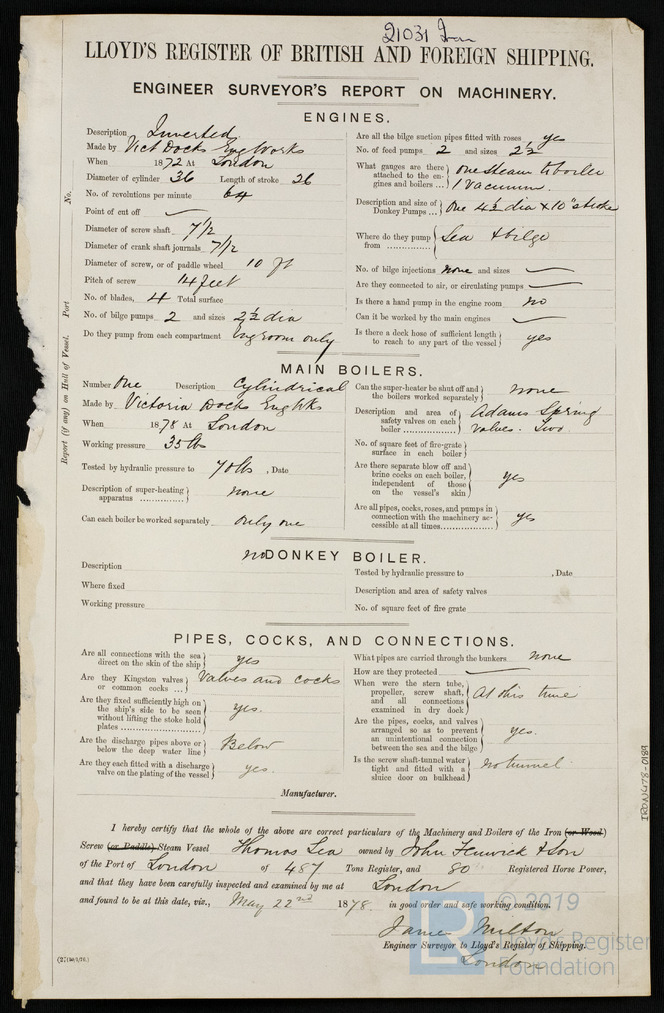 21031 Iron
LLOYD'S REGISTER OF BRITISH AND FOREIGN SHIPPING.
ENGINEER SURVEYOR'S REPORT ON MACHINERY.
ENGINES.
Description Inverted
Made by Vict Docks Eng Works
When 1872 At London
Diameter of cylinder 36 Length of stroke 26
No. of revolutions per minute 64
Point of cut off —
Diameter of screw shaft 7 1/2
Diameter of crank shaft journals 7 1/2
Diameter of screw, or of paddle wheel 10 ft
Pitch of screw 14 feet
No. of blades, 4 Total surface
No. of bilge pumps 2 and sizes 2 1/2 dia
Do they pump from each compartment Eng room only
Are all the bilge suction pipes fitted with roses yes
No. of feed pumps 2 and sizes 2 1/2
What gauges are there attached to the engines and boilers ... } one steam to boiler
1 vacuum.
Description and size of Donkey Pumps ... } One 4 1/2 dia x 10" stroke
Where do they pump from } Sea & bilge
No. of bilge injections none and sizes —
Are they connected to air, or circulating pumps —
Is there a hand pump in the engine room no
Can it be worked by the main engines —
Is there a deck hose of sufficient length to reach to any part of the vessel } yes
No. Port
Report (if any) on Hull of Vessel.
MAIN BOILERS.
Number One Description Cylindrical
Made by Victoria Docks Eng Wks
When 1878 At London
Working pressure 35 lbs
Tested by hydraulic pressure to 70 lbs, Date
Description of super-heating apparatus } none
Can each boiler be worked separately only one
Can the super-heater be shut off and the boilers worked separately } none
Description and area of safety valves on each boiler } Adams Spring
Valves. Two
No. of square feet of fire-grate surface in each boiler }
Are there separate blow off and brine cocks on each boiler, independent of those on the vessel's skin } yes
Are all pipes, cocks, roses, and pumps in connection with the machinery accessible at all times } yes
no DONKEY BOILER.
Description
Where fixed
Working pressure
Tested by hydraulic pressure to , Date
Description and area of safety valves
No. of square feet of fire grate
PIPES, COCKS, AND CONNECTIONS.
Are all connections with the sea direct on the skin of the ship } yes
Are they Kingston valves or common cocks ... } Valves and cocks
Are they fixed sufficiently high on the ship's side to be seen without lifting the stoke hold plates } yes.
Are the discharge pipes above or below the deep water line } Below
Are they each fitted with a discharge valve on the plating of the vessel } yes.
What pipes are carried through the bunkers none
How are they protected —
When were the stern tube, propeller, screw shaft, and all connections examined in dry dock } At this time
Are the pipes, cocks, and valves arranged so as to prevent an unintentional connection between the sea and the bilge } yes.
Is the screw shaft-tunnel water tight and fitted with a sluice door on bulkhead } no tunnel
Manufacturer.
I hereby certify that the whole of the above are correct particulars of the Machinery and Boilers of the Iron (or Wood)
Screw (or Paddle) Steam Vessel Thomas Lea owned by John Fenwick & Son
of the Port of London of 487 Tons Register, and 80 Registered Horse Power,
and that they have been carefully inspected and examined by me at London
and found to be at this date, viz., May 22nd 1878. in good order and safe working condition.
James Milton
Engineer Surveyor to Lloyd's Register of Shipping.
London
IRON478-0189
LR © 2019
Lloyd's Register
Foundation